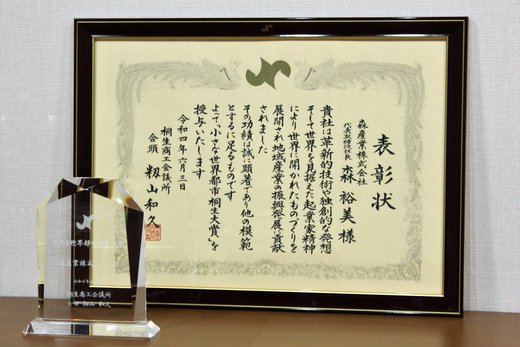 表彰状
森産業株式会社
代表取締役社長 森 裕美 様
貴社は革新的技術や独創的な発想
そして世界を見据えた起業家精神
により世界に開かれたものづくりを
展開され地域産業の振興発展に貢献
されました
その功績は誠に顕著であり他の模範
とするに足るものです
よって、“小さな世界都市・桐生大賞”を
授与いたします
令和四年六月三日
桐生商工会議所
会頭 籾山和久
小さな世界都市
産業株式
桐生商工会議所
籾山 和久